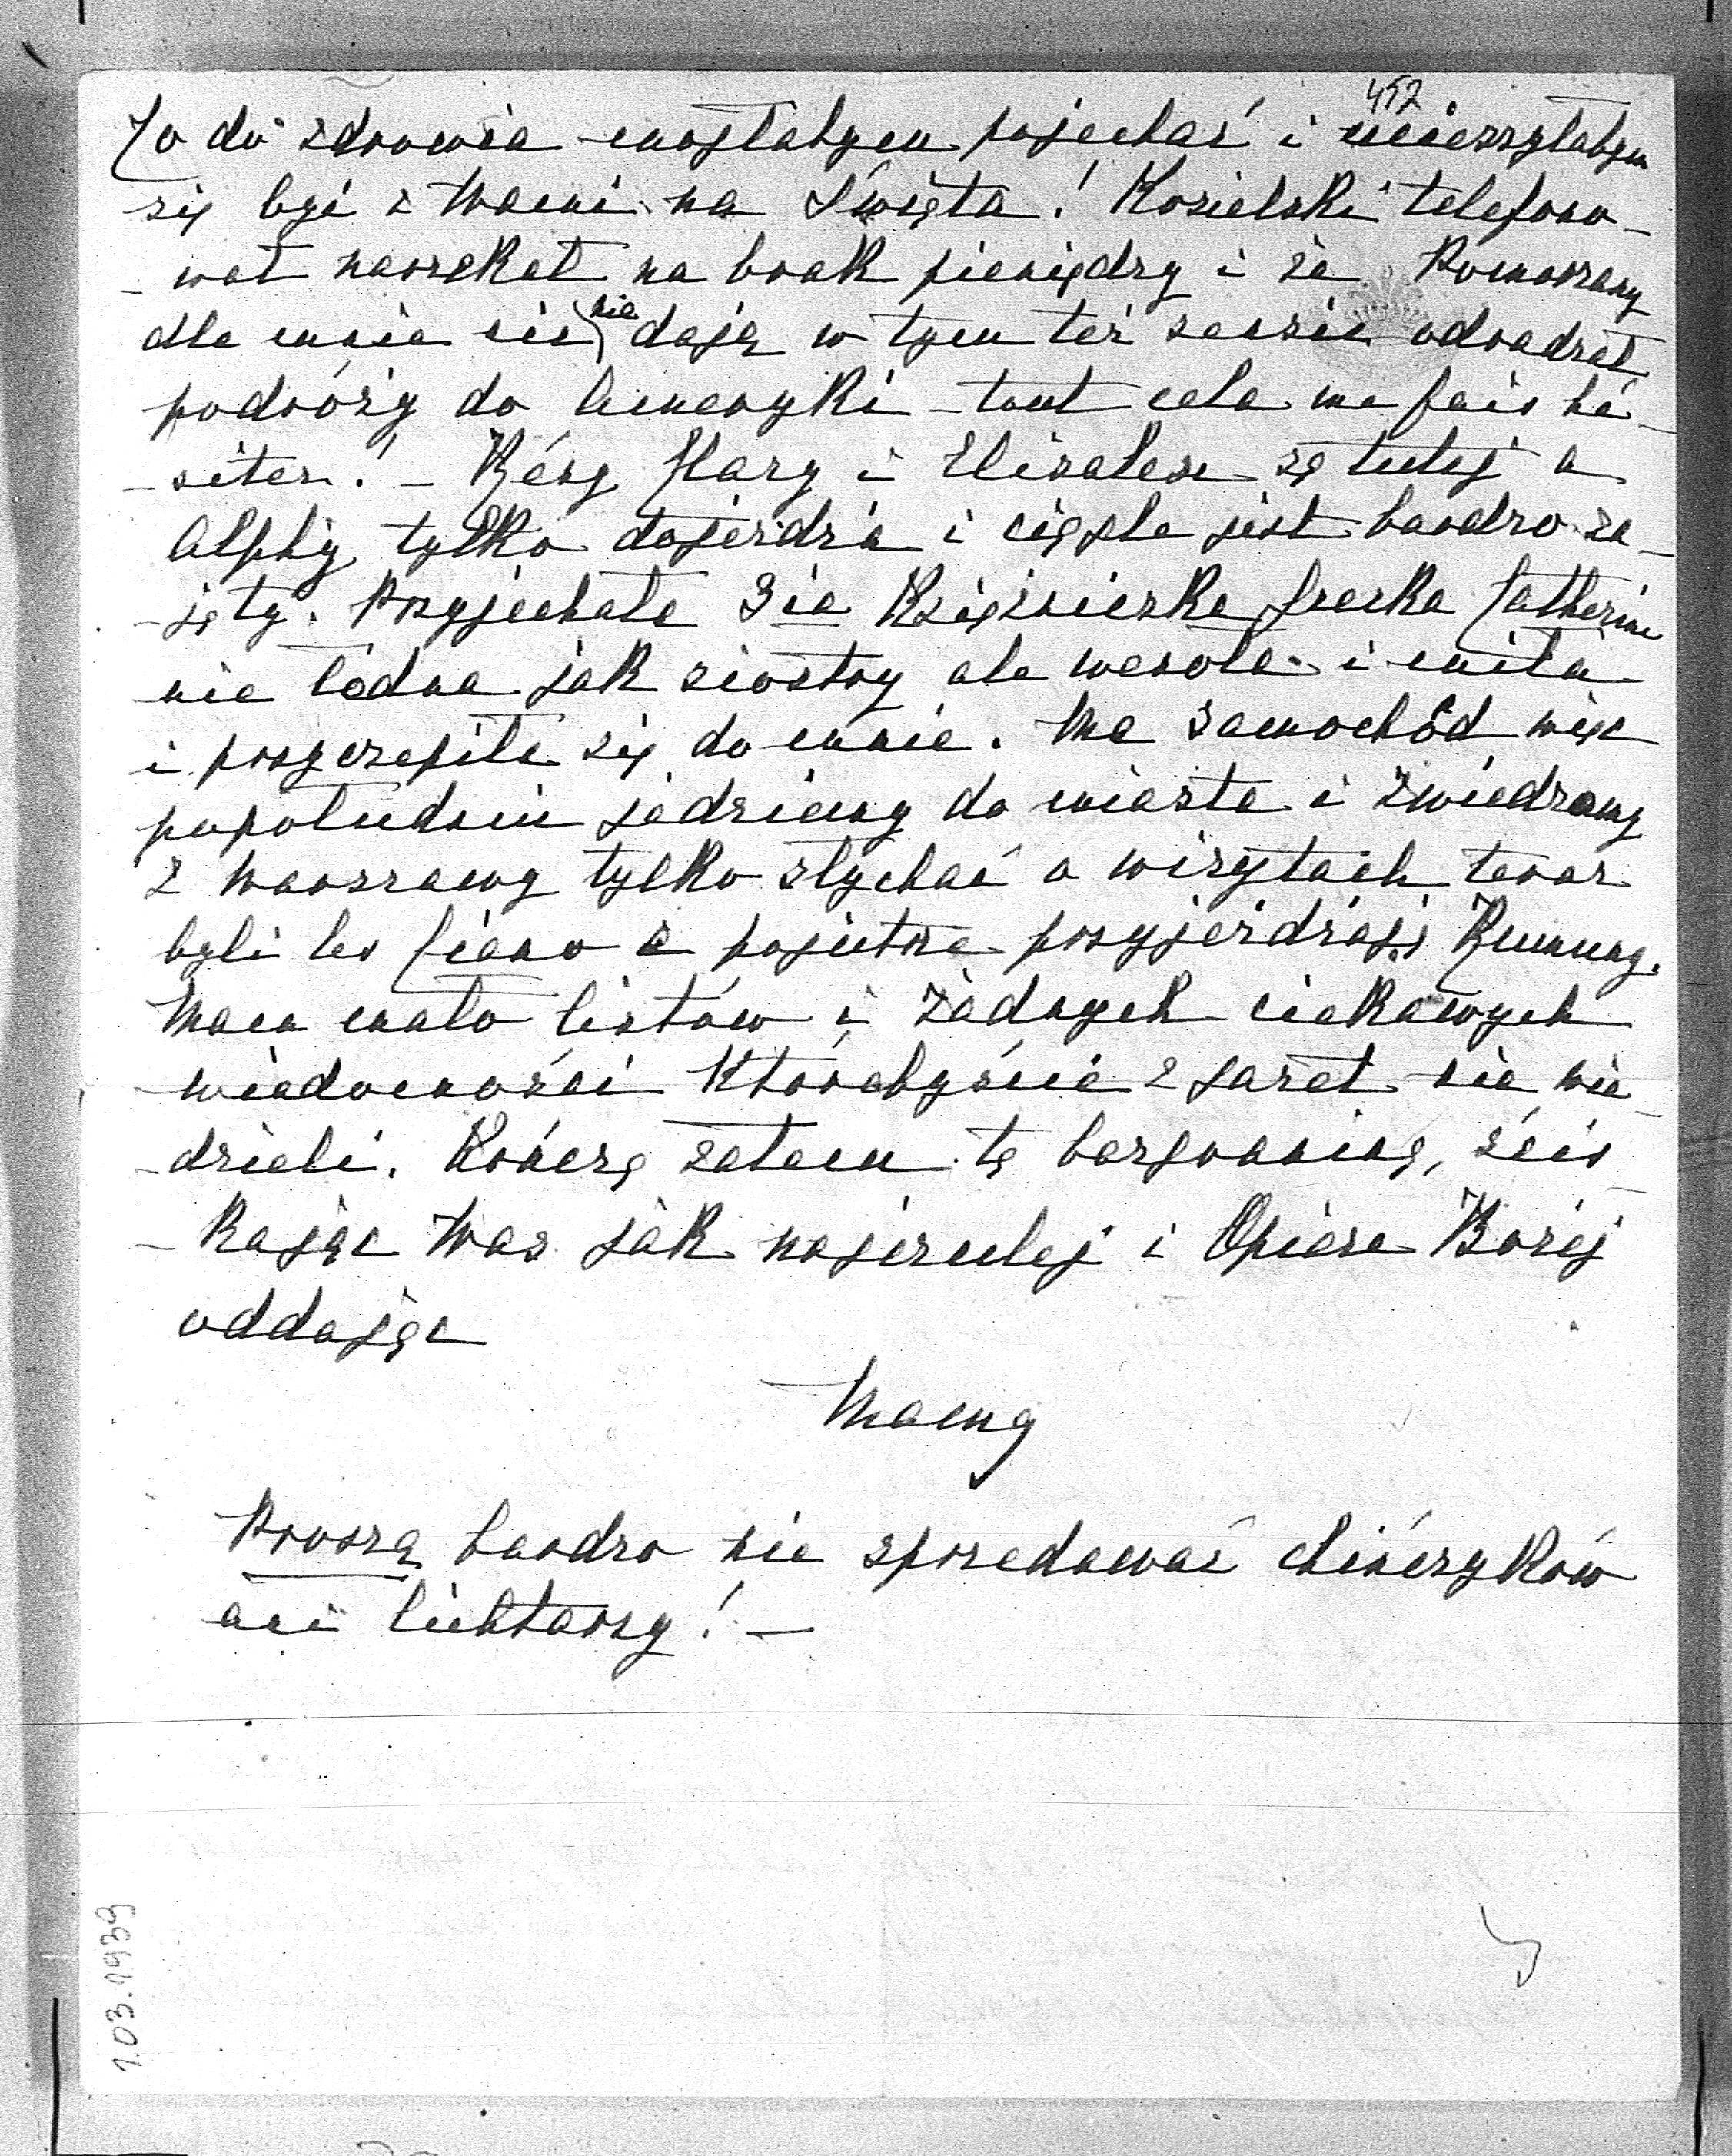 457
Co do zdrowia mogłabym pojechać i ucieszyłabym
się być z Wami na Święta! Kozielski telefono-
-wał narzekał na brak pieniędzy i że Pomorzany
dla mnie nic nie dają w tym też sensie odradzał
podróży do Ameryki - tout cela me fais hé-
-siter! - Bésy Mary i Elisalex są tutaj a
Alphy tylko dojeżdża i ciągle jest bardzo za-
-jęty. Przyjechała 3ia Księżniczka grecka Catherine
nie ładna jak siostry ale wesoła i miła
i przyczepiła się do mnie. Ma samochód więc
popołudniu jedziemy do miasta i zwiedzamy
z Warszawy tylko słychać o wizytach teraz
byli les Ciano a pojutrze przyjeżdżają Rumuny.
Mam mało listów i żadnych ciekawych
wiadomości którebyście z gazet nie wie-
-dzieli. Kończę zatem tę bazgraninę, ścis-
-kając Was jak najczulej i Opiece Bożej
oddając
Mamy
Proszę bardzo nie sprzedawać chińczyków
ani lichtarzy! -
1.03.1939